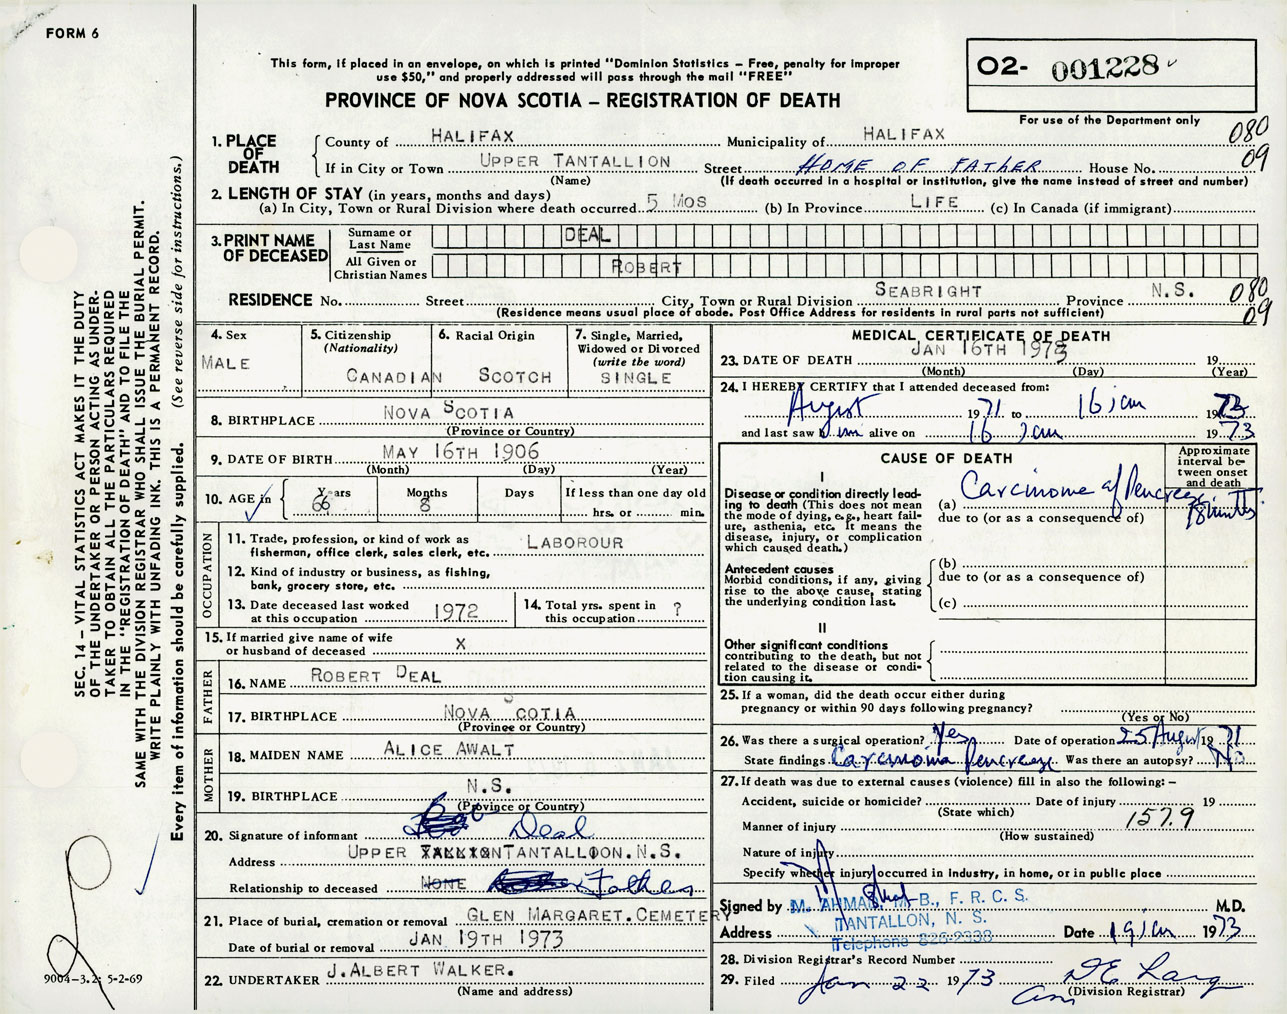 FORM 6
This form, if placed in an envelope, on which is printed "Dominion Statistics – Free, penalty for improper
use $50," and properly addressed will pass through the mail "FREE"
PROVINCE OF NOVA SCOTIA – REGISTRATION OF DEATH
O2- 001228
For use of the Department only
080
09
1. PLACE OF DEATH
County of HALIFAX Municipality of HALIFAX
If in City or Town UPPER TANTALLION Street HOME OF FATHER House No.
(Name) (If death occurred in a hospital or institution, give the name instead of street and number)
2. LENGTH OF STAY (in years, months and days)
(a) In City, Town or Rural Division where death occurred 5 MOS (b) In Province LIFE (c) In Canada (if immigrant)
3. PRINT NAME OF DECEASED
Surname or Last Name DEAL
All Given or Christian Names ROBERT
RESIDENCE No. Street City, Town or Rural Division SEABRIGHT Province N.S.
080
09
(Residence means usual place of abode. Post Office Address for residents in rural parts not sufficient)
4. Sex
MALE
5. Citizenship
(Nationality)
CANADIAN
6. Racial Origin
SCOTCH
7. Single, Married,
Widowed or Divorced
(write the word)
SINGLE
8. BIRTHPLACE NOVA SCOTIA
(Province or Country)
9. DATE OF BIRTH MAY 16TH 1906
(Month) (Day) (Year)
10. AGE in
Years Months Days If less than one day old
66 8 hrs. or min.
OCCUPATION
11. Trade, profession, or kind of work as
fisherman, office clerk, sales clerk, etc. LABOROUR
12. Kind of industry or business, as fishing,
bank, grocery store, etc.
13. Date deceased last worked
at this occupation 1972
14. Total yrs. spent in
this occupation ?
15. If married give name of wife
or husband of deceased X
FATHER
16. NAME ROBERT DEAL
17. BIRTHPLACE NOVA SCOTIA
(Province or Country)
MOTHER
18. MAIDEN NAME ALICE AWALT
19. BIRTHPLACE N.S.
(Province or Country)
20. Signature of informant Bob Deal
Address UPPER TANTALLOON. N.S.
Relationship to deceased NONE Father
21. Place of burial, cremation or removal GLEN MARGARET.CEMETERY
Date of burial or removal JAN 19TH 1973
22. UNDERTAKER J.ALBERT WALKER.
(Name and address)
MEDICAL CERTIFICATE OF DEATH
23. DATE OF DEATH JAN 16TH 1973 19
(Month) (Day) (Year)
24. I HEREBY CERTIFY that I attended deceased from:
August 1971 to 16 jan 1973
and last saw him alive on 16 jan 1973
CAUSE OF DEATH
Approximate
interval be-
tween onset
and death
I
Disease or condition directly lead-
ing to death (This does not mean
the mode of dying, e.g., heart fail-
ure, asthenia, etc. It means the
disease, injury, or complication
which caused death.)
(a) Carcinoma of Pancreas
due to (or as a consequence of)
Antecedent causes
Morbid conditions, if any, giving
rise to the above cause, stating
the underlying condition last.
(b)
due to (or as a consequence of)
(c)
II
Other significant conditions
contributing to the death, but not
related to the disease or condi-
tion causing it.
25. If a woman, did the death occur either during
pregnancy or within 90 days following pregnancy?
(Yes or No)
26. Was there a surgical operation? Yes Date of operation 25 August 1971
State findings Carcinoma Pancreas Was there an autopsy? No
27. If death was due to external causes (violence) fill in also the following: –
Accident, suicide or homicide? Date of injury 19
(State which)
Manner of injury 157.9
(How sustained)
Nature of injury
Specify whether injury occurred in industry, in home, or in public place
Signed by M. AHMAD, M.B., F.R.C.S. M.D.
TANTALLON, N. S.
Telephone 826-2338
Address Date 19 jan 1973
28. Division Registrar's Record Number
29. Filed Jan 22 1973
(Division Registrar)
SEC. 14 – VITAL STATISTICS ACT MAKES IT THE DUTY
OF THE UNDERTAKER OR PERSON ACTING AS UNDER-
TAKER TO OBTAIN ALL THE PARTICULARS REQUIRED
IN THE "REGISTRATION OF DEATH" AND TO FILE THE
SAME WITH THE DIVISION REGISTRAR WHO SHALL ISSUE THE BURIAL PERMIT.
WRITE PLAINLY WITH UNFADING INK. THIS IS A PERMANENT RECORD.
Every item of information should be carefully supplied. (See reverse side for instructions.)
9004-3.2: 5-2-69